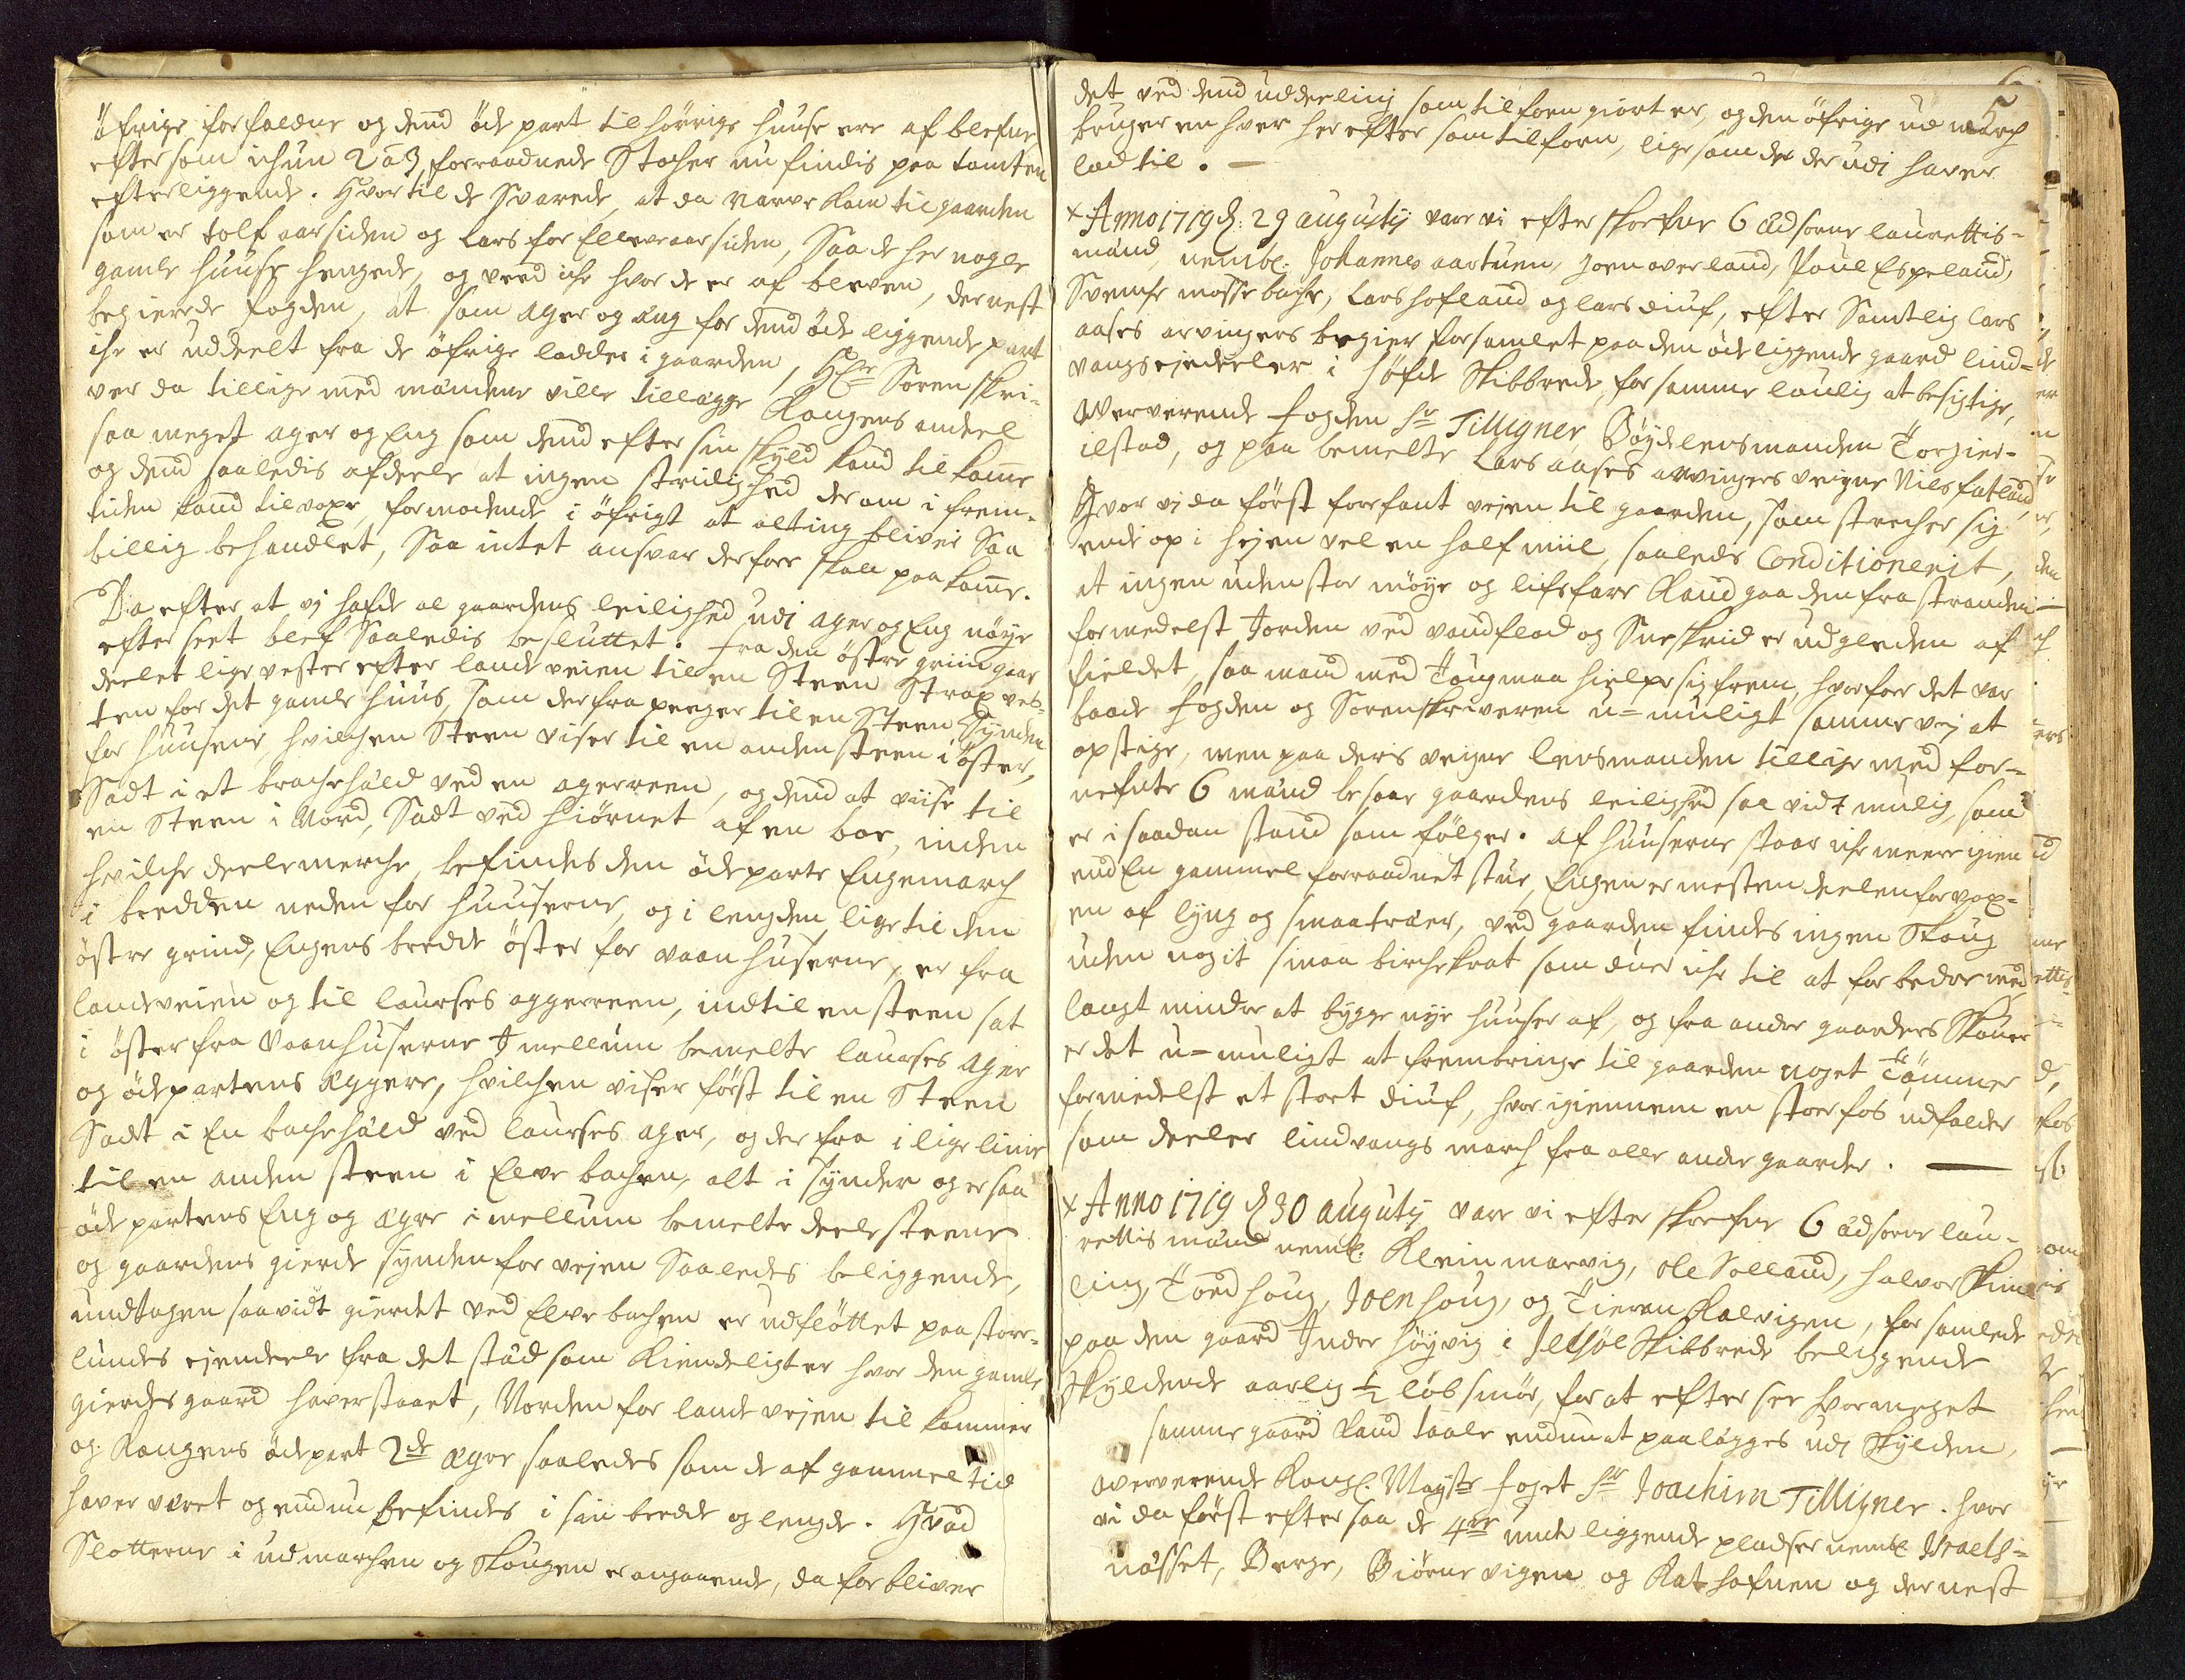 öfrige forfaldne og dend öde part tilhörrige huuse ere af blefne
efter som ichun 2 a 3 forraadnede Stocher nu findis paa tomten
efterliggende. Hvor til de Svarede, at da Narve kom til gaarden
som er tolf aar siden og Lars for Elleve aar siden, Saa de her nogle
gamle huuse hengede, og veed iche hvor de er af bleven, dernest
begierede fogden, at som ager og äng for dend öde liggende part
iche er uddeelt fra de öfrige lodder i gaarden, Hr Sorenskri-
ver da tillige med mändene ville tillägge Kongens andeel
saa meget ager og Eng som dend efter sin skyld kand tilkome
og dend saaledis afdeele at ingen striilighed derom i frem-
tiden kand tilvoxe, formodende i öfrigt at alting bliver Saa
billig behandlet, Saa intet ansvar derfore skall paa kome.
Da efter at vj hafde al gaardens leilighed udi ager og Eng nöye
efterseet blef Saaledis besluttet. fra den östre grind gaar
deelet lige vester efter landveien til en Steen Strax ves-
ten for det gamle huus, som derfra peeger til en Steen Synden
for huusene, hvilchen Steen viser til en anden steen i öster,
Sadt i et brachehäld ved en agerreen, og dend at viise til
en Steen i Nord, Sadt ved hiörnet af en boe, inden
hvilche deelemerche, befindes den ödeparts Engemarch
i bredden neden for huuserne, og i lengden lige til den
östre grind, Engens bredde öster for vaanhuserne, er fra
landveien og til laurses aggerreen, indtil en steen sat
i öster fra vaanhuserne Jmellum bemelte laurses ager
og ödepartens aggere, hvilchen viser först til en Steen
Sadt i En bachehäld ved laurses ager, og der fra i lige linie
til en anden steen i Elve bachen, alt i synder og er saa
öde partens Eng og agre imellum bemelte deelesteene
og gaardens gierde synden for vejen Saaledes beliggende,
undtagen saavidt gierdet ved Elve bachen er udflöttet paa store-
lundes ejendeele fra det städ som kiendeligt er hvor den gamle
gierdesgaard haver staaet, Norden for landvejen til kommer
og Kongens ödepart 2de agre saaledes som de af gammel tid
haver veret og endnu befindes i sin bredde og lengde. Hvad
Slotterne i udmarchen og skougen er angaaende, da forbliver
det ved dend uddeeling som tilforn giort er, og den öfrige ud march
bruger en hver her efter som tilforn, lige som de der udi haver
lod til. —
5
+ Anno 1719 d: 29 augustij vare vi efter skrefne 6 Edsorne laurettis-
mänd, nembl. Johannes aartuen, Joen overland, Poul Espeland,
Svenche mossebache, Lars hofland og lars diuf, efter Samtlig Lars
aases arvingers begier forsamlet paa den öde liggende gaard lind-
vangs ejedeeler i Höfde Skibbrede, for samme laulig at besigtige,
Oververende fogden Sr Tilligner, Böydelensmanden Torgier
ilstad, og paa bemelte Lars aases arvingers veigne Nils fatland,
Hvor vj da först forfant vejen til gaarden, som strecher sig
ende op i hejen vel en half miil, saaleds Conditionerit,
at ingen uden stor möye og lifsfare kand gaa den fra stranden
formedelst Jorden ved vandflod og Sneeskriid er udgleden af
fieldet, saa mand med Toug maa hielpe sig frem, hvorfor det var
baade fogden og Sorenskriveren u=muligt samme vej at
opstige, men paa deris veigne lensmanden tillige med for-
nefnte 6 mänd besaae gaardens leilighed saa vidt mulig, som
er i saadan stand som fölger. af huuserne staar iche meere igien
end En gammel forraadnet stue, Engen er mesten deelen forvox-
en af lyng og smaaträer, ved gaarden findes ingen Skoug
uden nogit smaa birchekrat som duer iche til at forbedre med
langt mindre at bygge nye huuser af, og fra andre gaarders Skouer
er det u=muligt at frembringe til gaarden noget Tömmer
formedelst et stort diuf, hvor igiennem en stor fos udfalder
som deeler lindvangs march fra alle andre gaarder. —
+ Anno 1719 d 30 augustij vare vi efter skrefne 6 Edsorne lau-
rettis mänd nembl. Klein marvig, Ole Solland, halvor Skime
ling, Tord houg, Joen houg, og Tieran Kalvigen, forsamlede
paa den gaard Indre höyvig i Jelsöe Skibbrede beliggende
skyldende aarlig ½ löb smör, for at efter see hvormeget
samme gaard kand taale endnu at paalägges udj Skylden,
oververende Kongl. Mayts foget Sr Joachim Tilligner. hvor
vi da först eftersaa de 4re unde liggende pladser nembl Israels-
nässet, Berge, Biörnevigen og Kathafnen og dernest